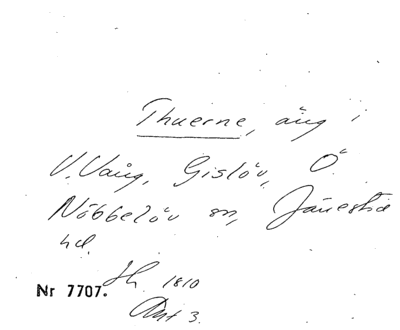 Thuerne, äng i
V. Vång, Gislöv, Ö.
Nöbbelöv sn, Järrestad
hd.
Sk. 1810
Nr 7707.
Akt 3.